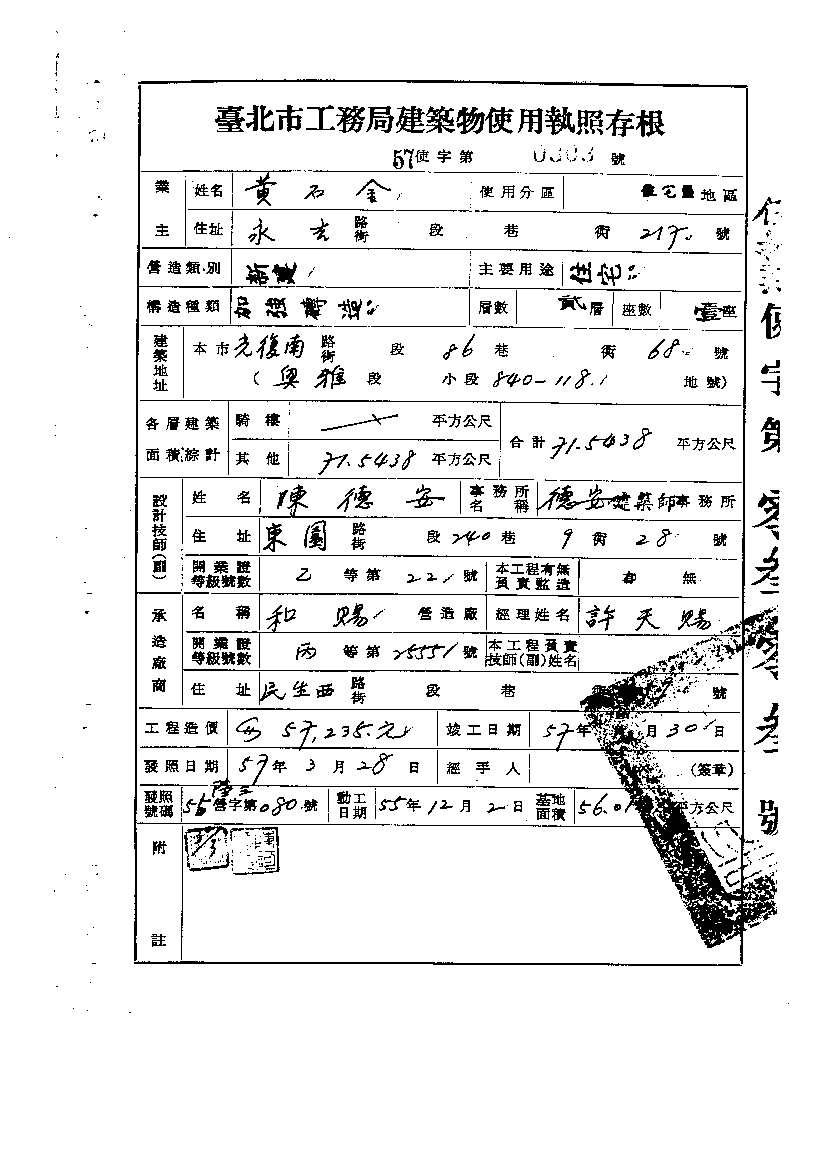 臺北市工務局建築物使用執照存根
57使字第 0303 號
業主 姓名 黃石金 使用分區 住宅區地區
住址 永吉 路街 段 巷 街 217 號
營造類別 新建 主要用途 住宅
構造種類 加強磚造 層數 貳層 座數 壹座
建築地址 本市光復南路街 段 86巷 街 68 號
(興雅段 小段 840-118 地號)
各層建築面積綜計 騎樓 平方公尺 合計 71.5438 平方公尺
其他 71.5438 平方公尺
設計技師(副) 姓名 陳德安 事務所名稱 德安建築師事務所
住址 東園 路街 段 240巷 9街 28 號
開業證等級號數 乙等第 221 號 本工程有無負責監造 無
承造廠商 名稱 和賜 營造廠 經理姓名 許天賜
開業證等級號數 丙等第 25551 號 本工程負責技師(副)姓名
住址 民生西 路街 段 巷 號
工程造價 57,235.元 竣工日期 57年 月30日
發照日期 57年3月28日 經手人 (簽章)
發照號碼 55營字第080號 動工日期 55年12月2日 基地面積 56.01 平方公尺
附註
使字第零叁零叁號